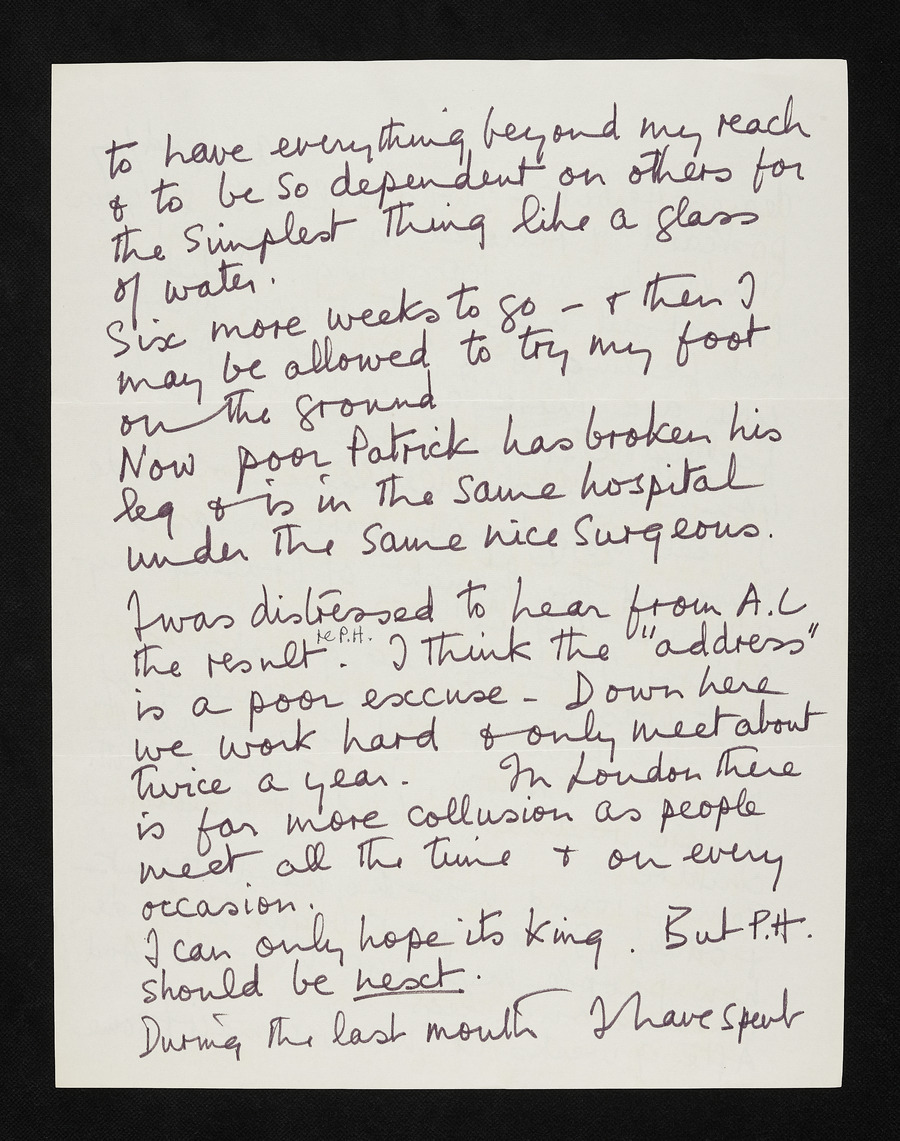 to have everything beyond my reach
& to be so dependent on others for
the simplest thing like a glass
of water.
Six more weeks to go – & then I
may be allowed to try my foot
on the ground
Now poor Patrick has broken his
leg & is in the same hospital
under the same nice surgeons.
I was distressed to hear from A.L
re P.H.
the result. I think the "address"
is a poor excuse – Down here
we work hard & only meet about
twice a year. In London there
is far more collusion as people
meet all the time & on every
occasion.
I can only hope its King. But P.H.
should be next.
During the last month I have spent